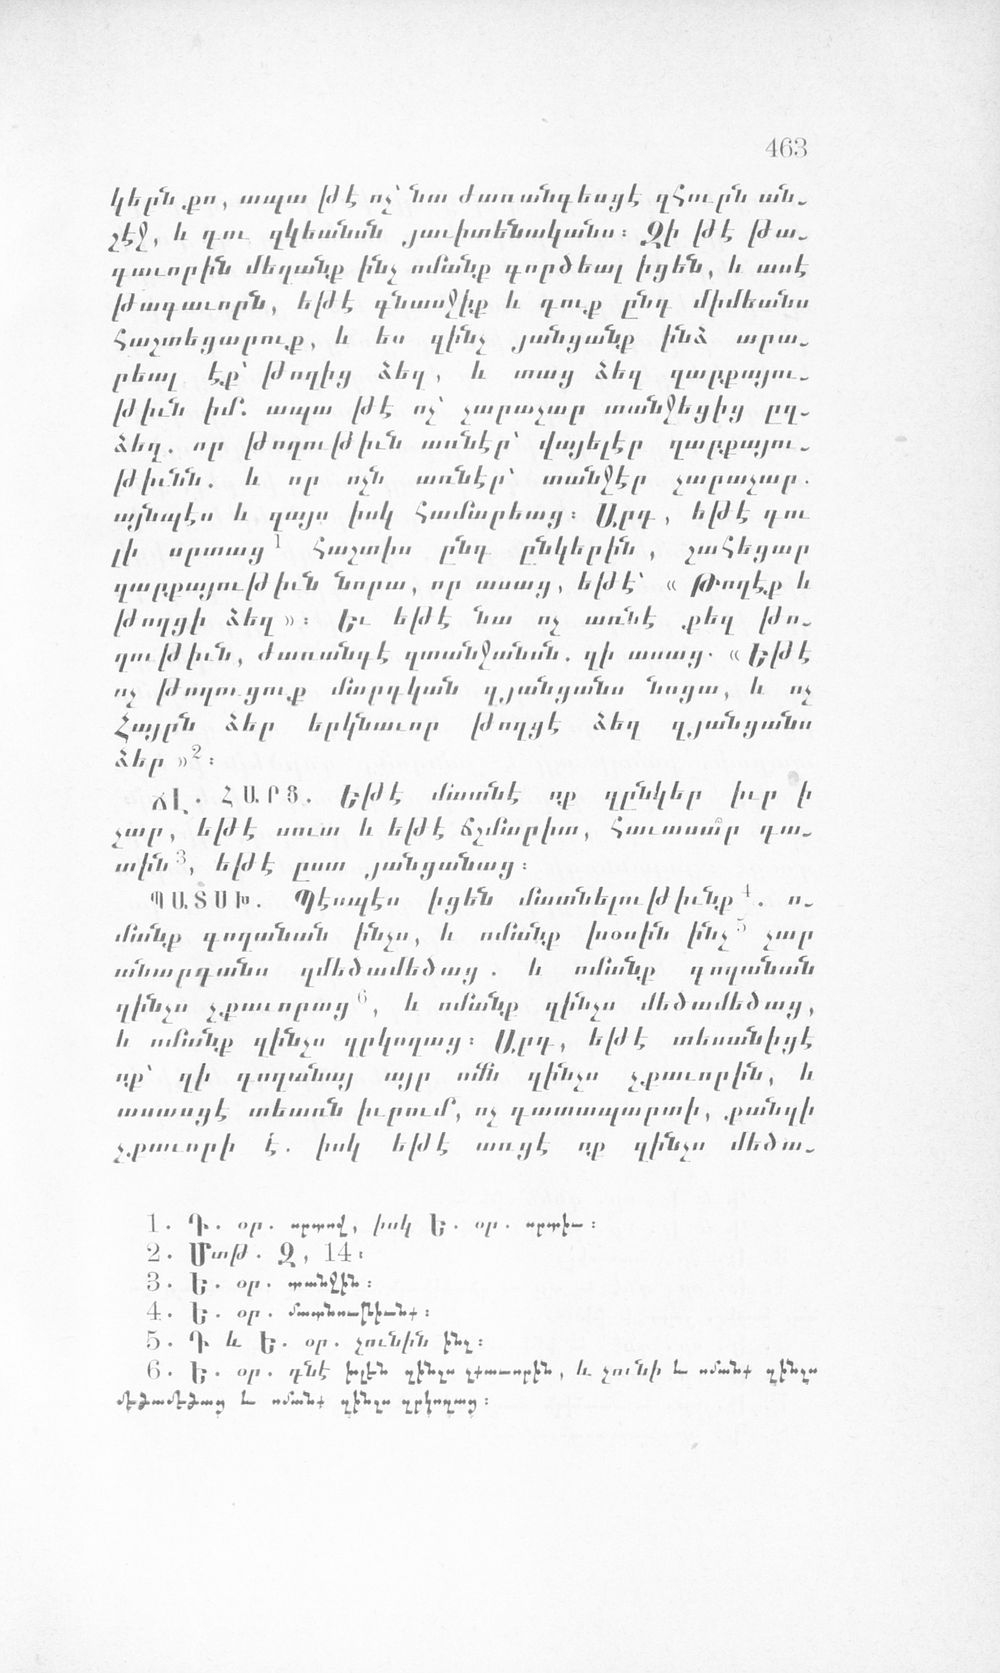 463
կերն քո, ապա թէ ոչ՝ նա ժառանգեսցէ զՀուրն ան֊
շէջ, և դու զկեանսն յաւիտենականս։ Զի թէ թա֊
գաւորին մեղանք ինչ ոմանք գործեալ իցեն, և ասէ
թագաւորն, եթէ գնասջիք և դուք ընդ միմեանս
հաշտեցարուք, և ես զինչ յանցանք ինձ արա֊
րեալ էք՝ թողից ձեզ, և տաց ձեզ զարքայու֊
թիւն իմ. ապա թէ ոչ՝ չարաչար տանջեցից ըզ֊
ձեզ. որ թողութիւն առնէր՝ վայելէր զարքայու֊
թիւնն. և որ ոչն առնէր՝ տանջէր չարաչար.
այնպէս և զայս իսկ համարեաց։ Արդ, եթէ դու
լի սրտաց1 հաշտիս ընդ ընկերին, շահեցար
զարքայութիւն նորա, որ ասաց, եթէ՝ «Թողէք և
թողցի ձեզ»։ Եւ եթէ նա ոչ առնէ քեզ թո֊
ղութիւն, ժառանգէ զտանջանսն. զի ասաց. «Եթէ
ոչ թողուցուք մարդկան զյանցանս նոցա, և ոչ
Հայրն ձեր երկնաւոր թողցէ ձեզ զյանցանս
ձեր»2։
ՃԼ. ՀԱՐՑ. Եթէ մատնէ ոք զընկեր իւր ի
չար, եթէ սուտ և եթէ ճշմարիտ, հաւասա՞ր դա֊
տին3, եթէ ըստ յանցանաց։
ՊԱՏՍԽ. Պէսպէս իցեն մատնելութիւնք4. ո֊
մանք գողանան ինչս, և ոմանք խօսին ինչ5 չար
անարգանս զմեծամեծաց. և ոմանք գողանան
զինչս չքաւորաց6, և ոմանք զինչս մեծամեծաց,
և ոմանք զինչս զրկողաց։ Արդ, եթէ տեսանիցէ
ոք՝ զի գողանայ այր ոմն զինչս չքաւորին, և
ասասցէ տեառն իւրում, ոչ դատապարտի, քանզի
չքաւորի է. իսկ եթէ առցէ ոք զինչս մեծա֊
1. Դ. օր. սրտով, իսկ Ե. օր. սրտիւ։
2. Մտթ. Զ, 14։
3. Ե. օր. տանջին։
4. Ե. օր. մատնութիւնք։
5. Դ և Ե. օր. չունին ինչ։
6. Ե. օր. դնէ իցեն զինչս չքաւորին, և չունի և ոմանք զինչս
մեծամեծաց և ոմանք զինչս զրկողաց։